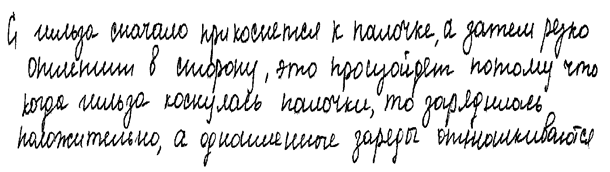 Ц гильза сначала прикоснется к палочке, а затем резко
отлетит в сторону, это произойдет потому что
когда гильза коснулась палочки, то зарядилась
положительно, а одноименные заряды отталкиваются